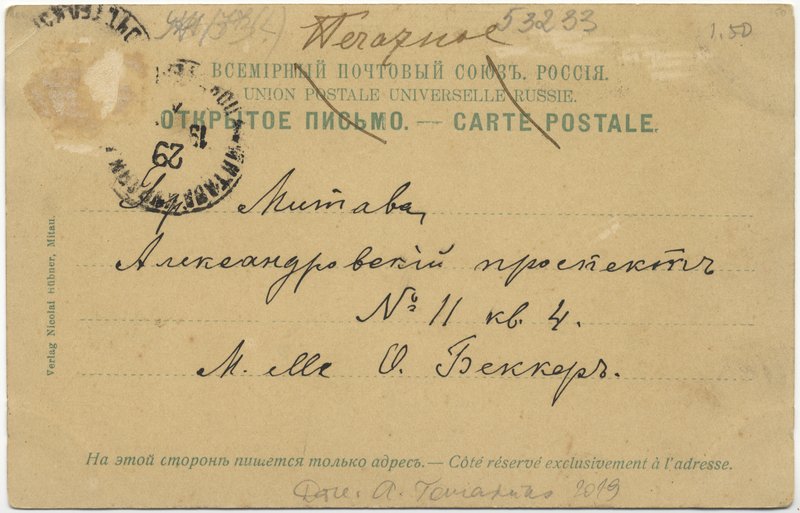 53233
1.50
ВСЕМІРНЫЙ ПОЧТОВЫЙ СОЮЗЪ. РОССІЯ.
UNION POSTALE UNIVERSELLE RUSSIE.
ОТКРЫТОЕ ПИСЬМО. — CARTE POSTALE.
29
Гр. Митава,
Александровскій проспектъ
№ 11 кв. 4.
M. elle О. Беккеръ.
Verlag Nicolai Hübner, Mitau.
На этой сторонѣ пишется только адресъ. — Côté réservé exclusivement à l'adresse.
2019